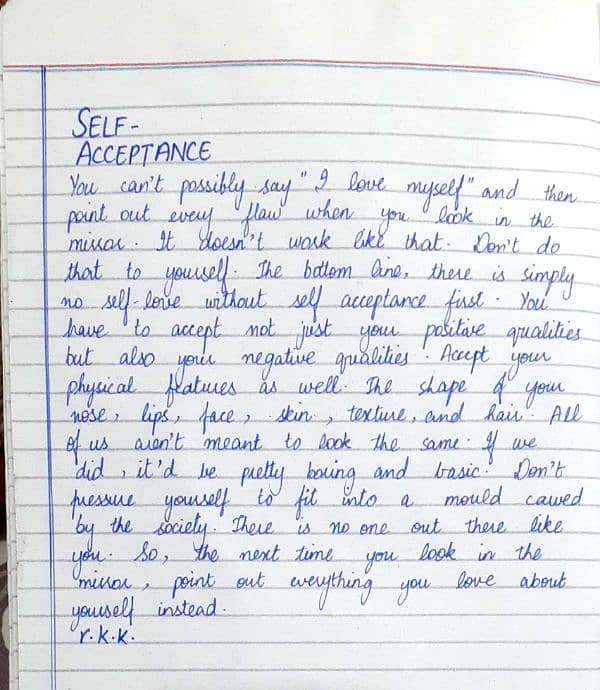 SELF-
ACCEPTANCE
You can't possibly say "I love myself" and then
point out every flaw when you look in the
mirror. It doesn't work like that. Don't do
that to yourself. The bottom line, there is simply
no self-love without self acceptance first. You
have to accept not just your positive qualities
but also your negative qualities. Accept your
physical features as well. The shape of your
nose, lips, face, skin, texture, and hair. All
of us aren't meant to look the same. If we
did, it'd be pretty boring and basic. Don't
pressure yourself to fit into a mould carved
by the society. There is no one out there like
you. So, the next time you look in the
mirror, point out everything you love about
yourself instead.
r.k.k.